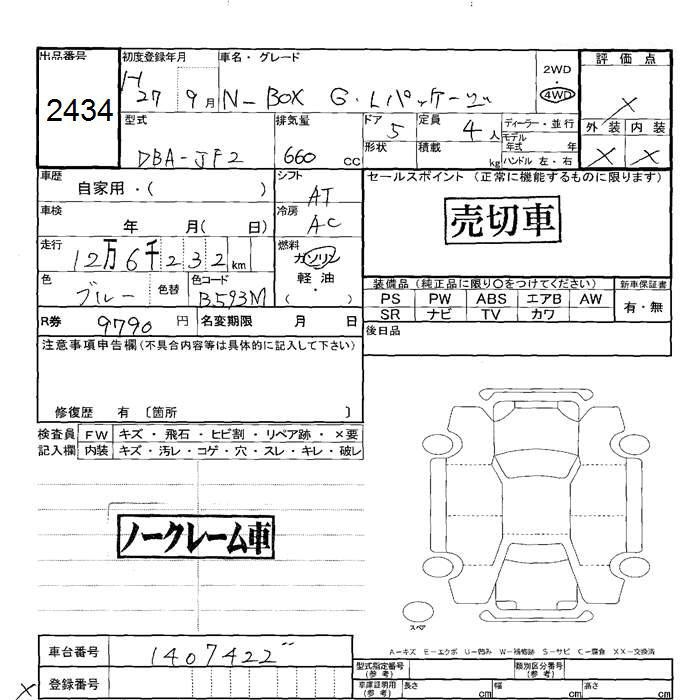 出品番号 初度登録年月 車名・グレード 2WD 評価点
2434 H 27 9月 N-BOX G・Lパッケージ 4WD ×
型式 排気量 ドア 定員 ディーラー・並行 外装 内装
DBA-JF2 660 cc 5 4人 モデル年式 年 × ×
形状 積載 kg ハンドル 左・右
車歴 シフト セールスポイント (正常に機能するものに限ります)
自家用・( ) AT
車検 冷房 売切車
年 月( 日) AC
走行 燃料
12万6千232 km ガソリン
色 色コード 軽油 装備品 (純正品に限り○をつけてください) 新車保証書
ブルー 色替 B593M ( ) PS PW ABS エアB AW 有・無
SR ナビ TV カワ
R券 9790 円 名変期限 月 日 後日品
注意事項申告欄 (不具合内容等は具体的に記入して下さい)
修復歴 有 〔箇所 〕
検査員 FW キズ・飛石・ヒビ割・リペア跡・×要
記入欄 内装 キズ・汚レ・コゲ・穴・スレ・キレ・破レ
ノークレーム車
スペア
A-キズ E-エクボ U-凹み W-補修跡 S-サビ C-腐食 XX-交換済
車台番号 1407422 型式指定番号 (参考) 類別区分番号 (参考)
× 登録番号 車庫証明用 (参考) 長さ cm 幅 cm 高さ cm